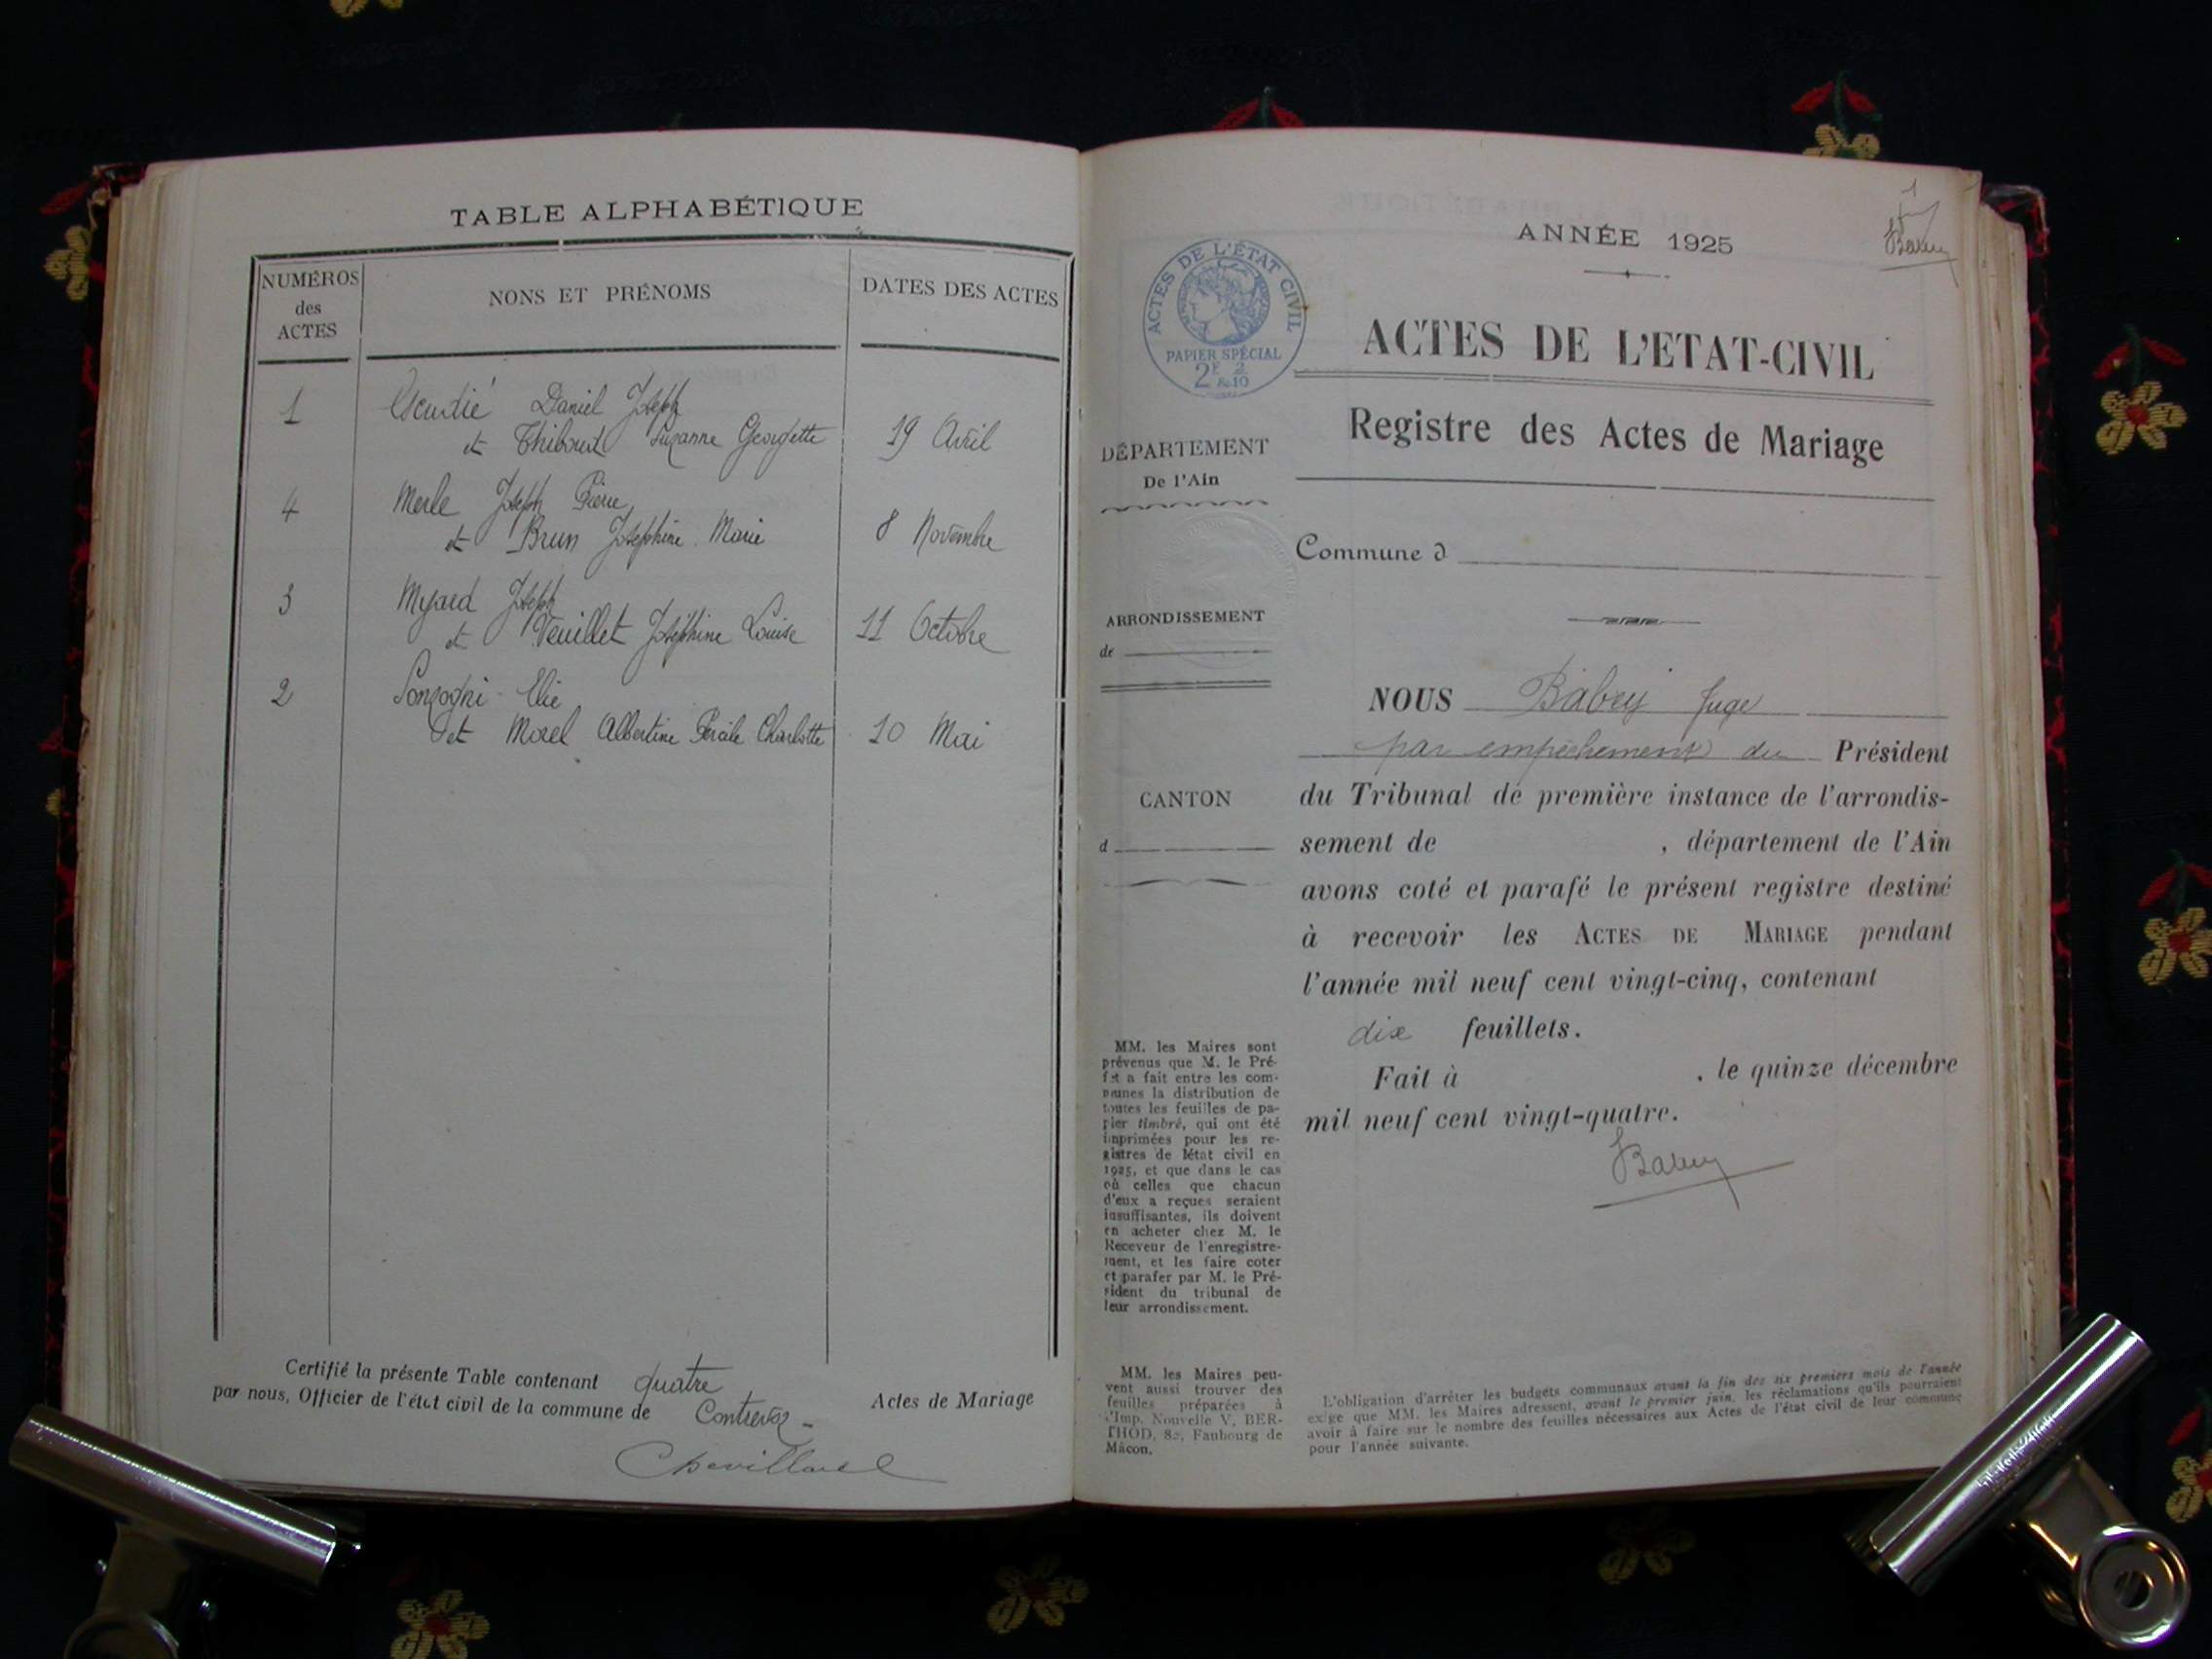 TABLE ALPHABÉTIQUE
NUMÉROS
des
ACTES
NONS ET PRÉNOMS
DATES DES ACTES
1 Escudié Daniel Joseph
et Thibout Suzanne Georgette 19 Avril
4 Merle Joseph Pierre
et Brun Joséphine Marie 8 Novembre
3 Myard Joseph
et Veuillet Joséphine Louise 11 Octobre
2 Sonzogni Elie
et Morel Albertine Charlotte 10 Mai
Certifié la présente Table contenant quatre Actes de Mariage
par nous, Officier de l'état civil de la commune de Contrevoz
Chevillard
1
Babey
ANNÉE 1925
ACTES DE L'ÉTAT CIVIL
PAPIER SPÉCIAL
2F 2/10
ACTES DE L'ETAT-CIVIL
Registre des Actes de Mariage
DÉPARTEMENT
De l'Ain
Commune d
ARRONDISSEMENT
de
CANTON
d
NOUS Babey Juge
par empêchement du Président
du Tribunal de première instance de l'arrondis-
sement de , département de l'Ain
avons coté et parafé le présent registre destiné
à recevoir les ACTES DE MARIAGE pendant
l'année mil neuf cent vingt-cinq, contenant
dix feuillets.
Fait à , le quinze décembre
mil neuf cent vingt-quatre.
Babey
MM. les Maires sont
prévenus que M. le Pré-
fet a fait entre les com-
munes la distribution de
toutes les feuilles de pa-
pier timbré, qui ont été
imprimées pour les re-
gistres de létat civil en
1925, et que dans le cas
où celles que chacun
d'eux a reçues seraient
insuffisantes, ils doivent
en acheter chez M. le
Receveur de l'enregistre-
ment, et les faire coter
et parafer par M. le Pré-
sident du tribunal de
leur arrondissement.
MM. les Maires peu-
vent aussi trouver des
feuilles préparées à
l'Imp. Nouvelle V. BER-
THOD, 8, Faubourg de
Mâcon.
L'obligation d'arrêter les budgets communaux avant la fin des six premiers mois de l'année
exige que MM. les Maires adressent, avant le premier juin, les réclamations qu'ils pourraient
avoir à faire sur le nombre des feuilles nécessaires aux Actes de l'état civil de leur commune
pour l'année suivante.